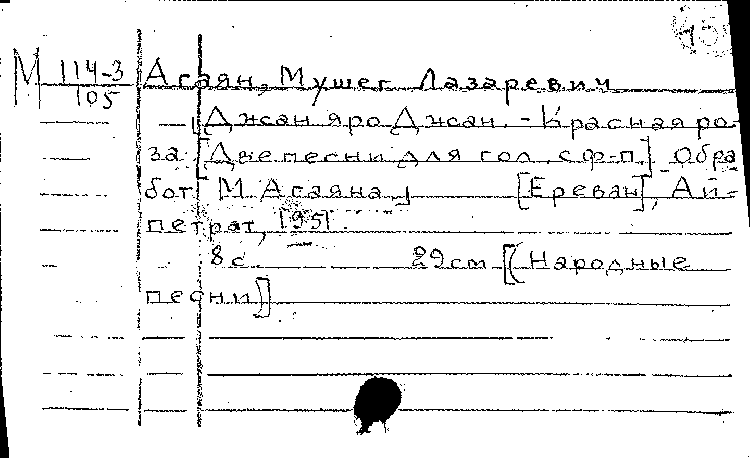 М 114-3 Агаян, Мушег Лазаревич
105
—, Джан яро Джан. - Красная ро-
за. [Две песни для гол. с ф-п.] Обра
бот. М. Агаяна. [Ереван], Ай-
петрат, 1951.
8 с. 29 см [(Народные
песни)]